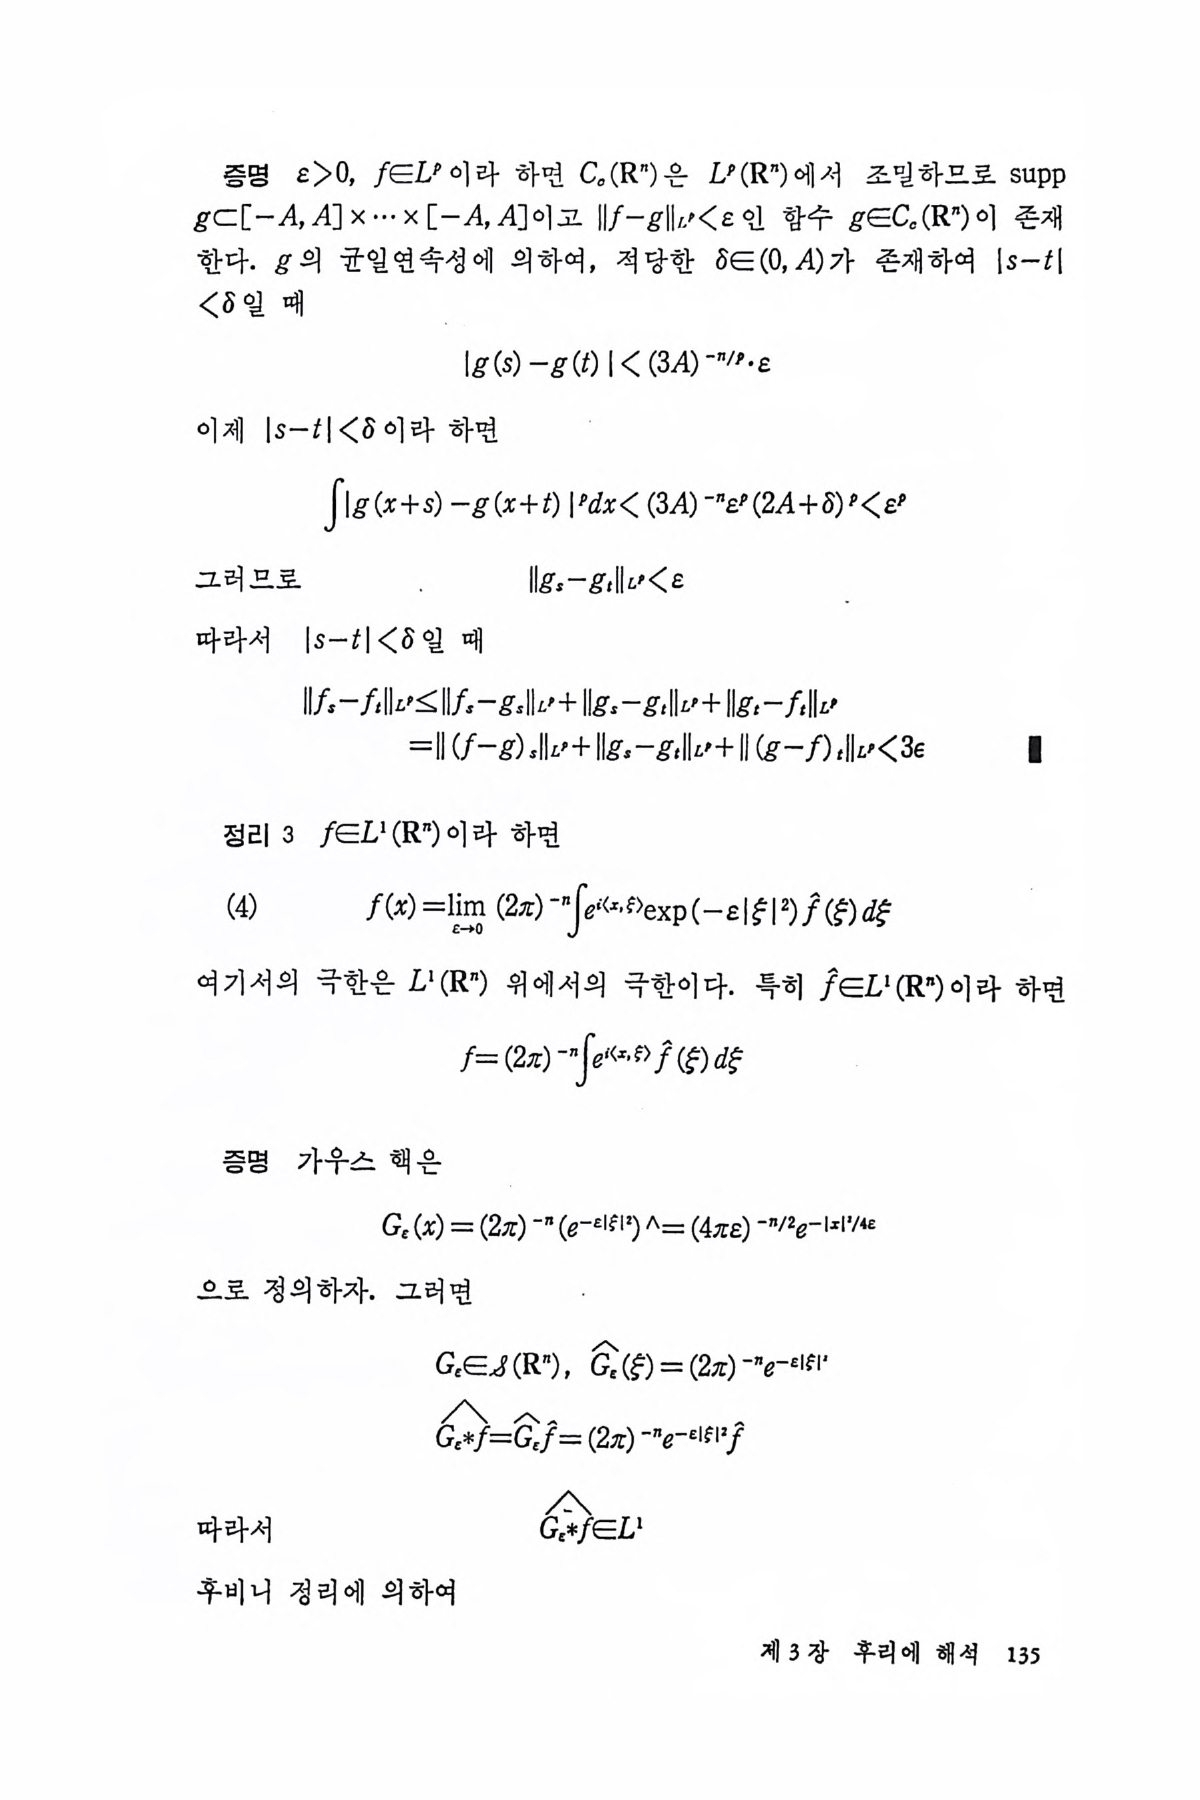 증명 ε>0, f∈Lᵖ이라 하면 C꜀(Rⁿ)은 Lᵖ(Rⁿ)에서 조밀하므로 supp
g⊂[−A, A]×⋯×[−A, A]이고 ‖f−g‖_{Lᵖ}<ε인 함수 g∈C꜀(Rⁿ)이 존재
한다. g의 균일연속성에 의하여, 적당한 δ∈(0, A)가 존재하여 |s−t|
<δ일 때
|g(s)−g(t)|<(3A)^{−n/p}·ε
이제 |s−t|<δ이라 하면
∫|g(x+s)−g(x+t)|ᵖdx<(3A)^{−n}εᵖ(2A+δ)ᵖ<εᵖ
그러므로 ‖g_s−g_t‖_{Lᵖ}<ε
따라서 |s−t|<δ일 때
‖f_s−f_t‖_{Lᵖ}≤‖f_s−g_s‖_{Lᵖ}+‖g_s−g_t‖_{Lᵖ}+‖g_t−f_t‖_{Lᵖ}
=‖(f−g)_s‖_{Lᵖ}+‖g_s−g_t‖_{Lᵖ}+‖(g−f)_t‖_{Lᵖ}<3ε
정리 3 f∈L¹(Rⁿ)이라 하면
(4) f(x)=lim_{ε→0} (2π)^{−n}∫e^{i⟨x,ξ⟩}exp(−ε|ξ|²)f̂(ξ)dξ
여기서의 극한은 L¹(Rⁿ) 위에서의 극한이다. 특히 f̂∈L¹(Rⁿ)이라 하면
f=(2π)^{−n}∫e^{i⟨x,ξ⟩}f̂(ξ)dξ
증명 가우스 핵은
G_ε(x)=(2π)^{−n}(e^{−ε|ξ|²})^=(4πε)^{−n/2}e^{−|x|²/4ε}
으로 정의하자. 그러면
G_ε∈𝒮(Rⁿ), \widehat{G_ε}(ξ)=(2π)^{−n}e^{−ε|ξ|²}
\widehat{G_ε*f}=\widehat{G_ε}f̂=(2π)^{−n}e^{−ε|ξ|²}f̂
따라서 \widehat{G_ε*f}∈L¹
후비니 정리에 의하여
제 3 장 후리에 해석 135